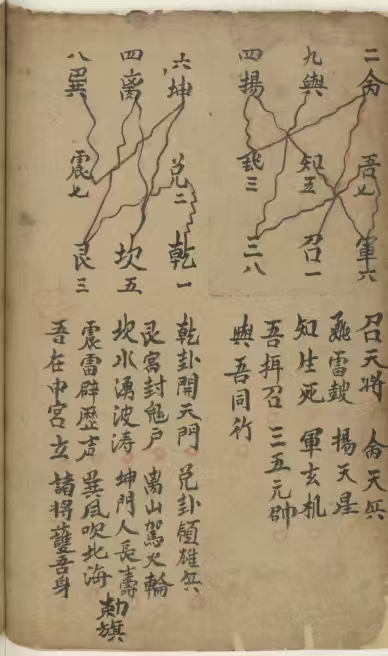 二禽 吾七 軍六
九與 知五 召一
四揚 三 三八
六坤 兌二 乾一
四离 坎五
八巽 震七 艮三
召天將 禽天兵
雷鼓 揚天星
知生死 軍玄机
吾召 三五元帥
與吾同行
乾卦開天門 兌卦領雄兵
艮宮封鬼户 离山駕火輪
坎水湧波涛 坤門人長壽
震雷辟歷声 巽風吹北海
吾在中宮立 諸將護吾身
勅旗